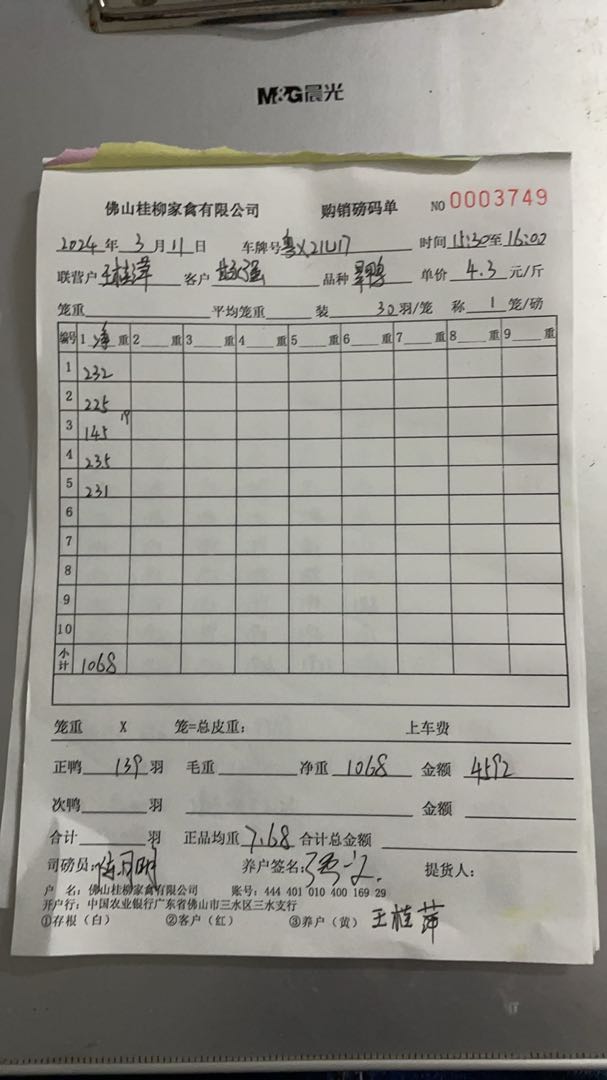 M&G晨光
佛山桂柳家禽有限公司 购销磅码单 NO 0003749
2024年3月11日 车牌号 粤X21U17 时间 15:30至16:00
联营户 王桂萍 客户 强 品种 鸭 单价 4.3 元/斤
笼重 平均笼重 装 30 羽/笼 称 1 笼/磅
编号 1 净 重 2 重 3 重 4 重 5 重 6 重 7 重 8 重 9 重
1 232
2 225
3 145
4 235
5 231
6
7
8
9
10
小计 1068
笼重 X 笼=总皮重： 上车费
正鸭 139 羽 毛重 净重 1068 金额 4592
次鸭 羽 金额
合计 羽 正品均重 7.68 合计总金额
司磅员： 养户签名： 提货人：
户 名：佛山桂柳家禽有限公司 账号：444 401 010 400 169 29
开户行：中国农业银行广东省佛山市三水区三水支行
①存根（白） ②客户（红） ③养户（黄） 王桂萍